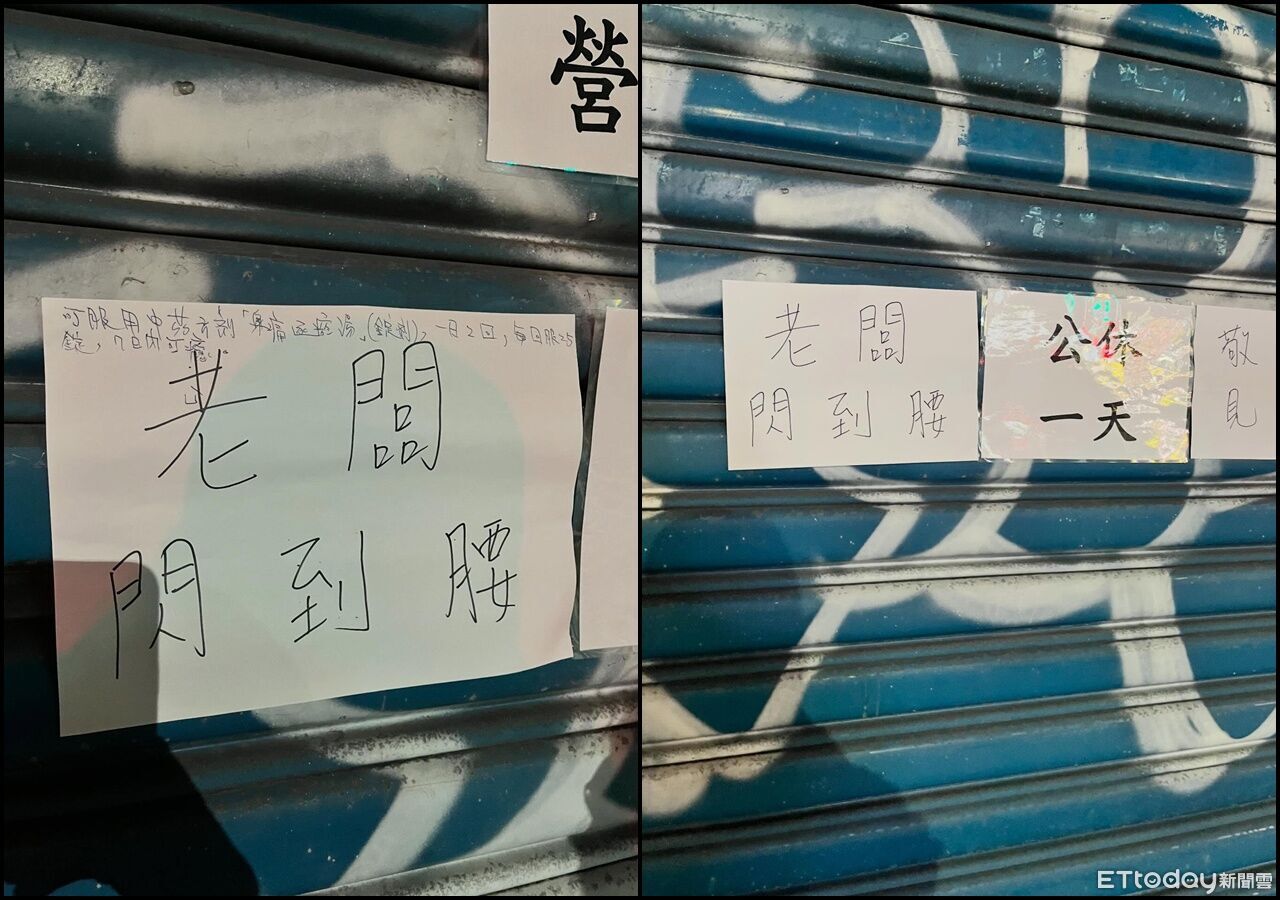 營
可服用中药方剂「身痛逐瘀湯」(錠劑)，一日2回，每回服25
錠，7日內可癒。
老闆
閃到腰
老闆
閃到腰
公休
一天
敬
見
ETtoday新聞雲